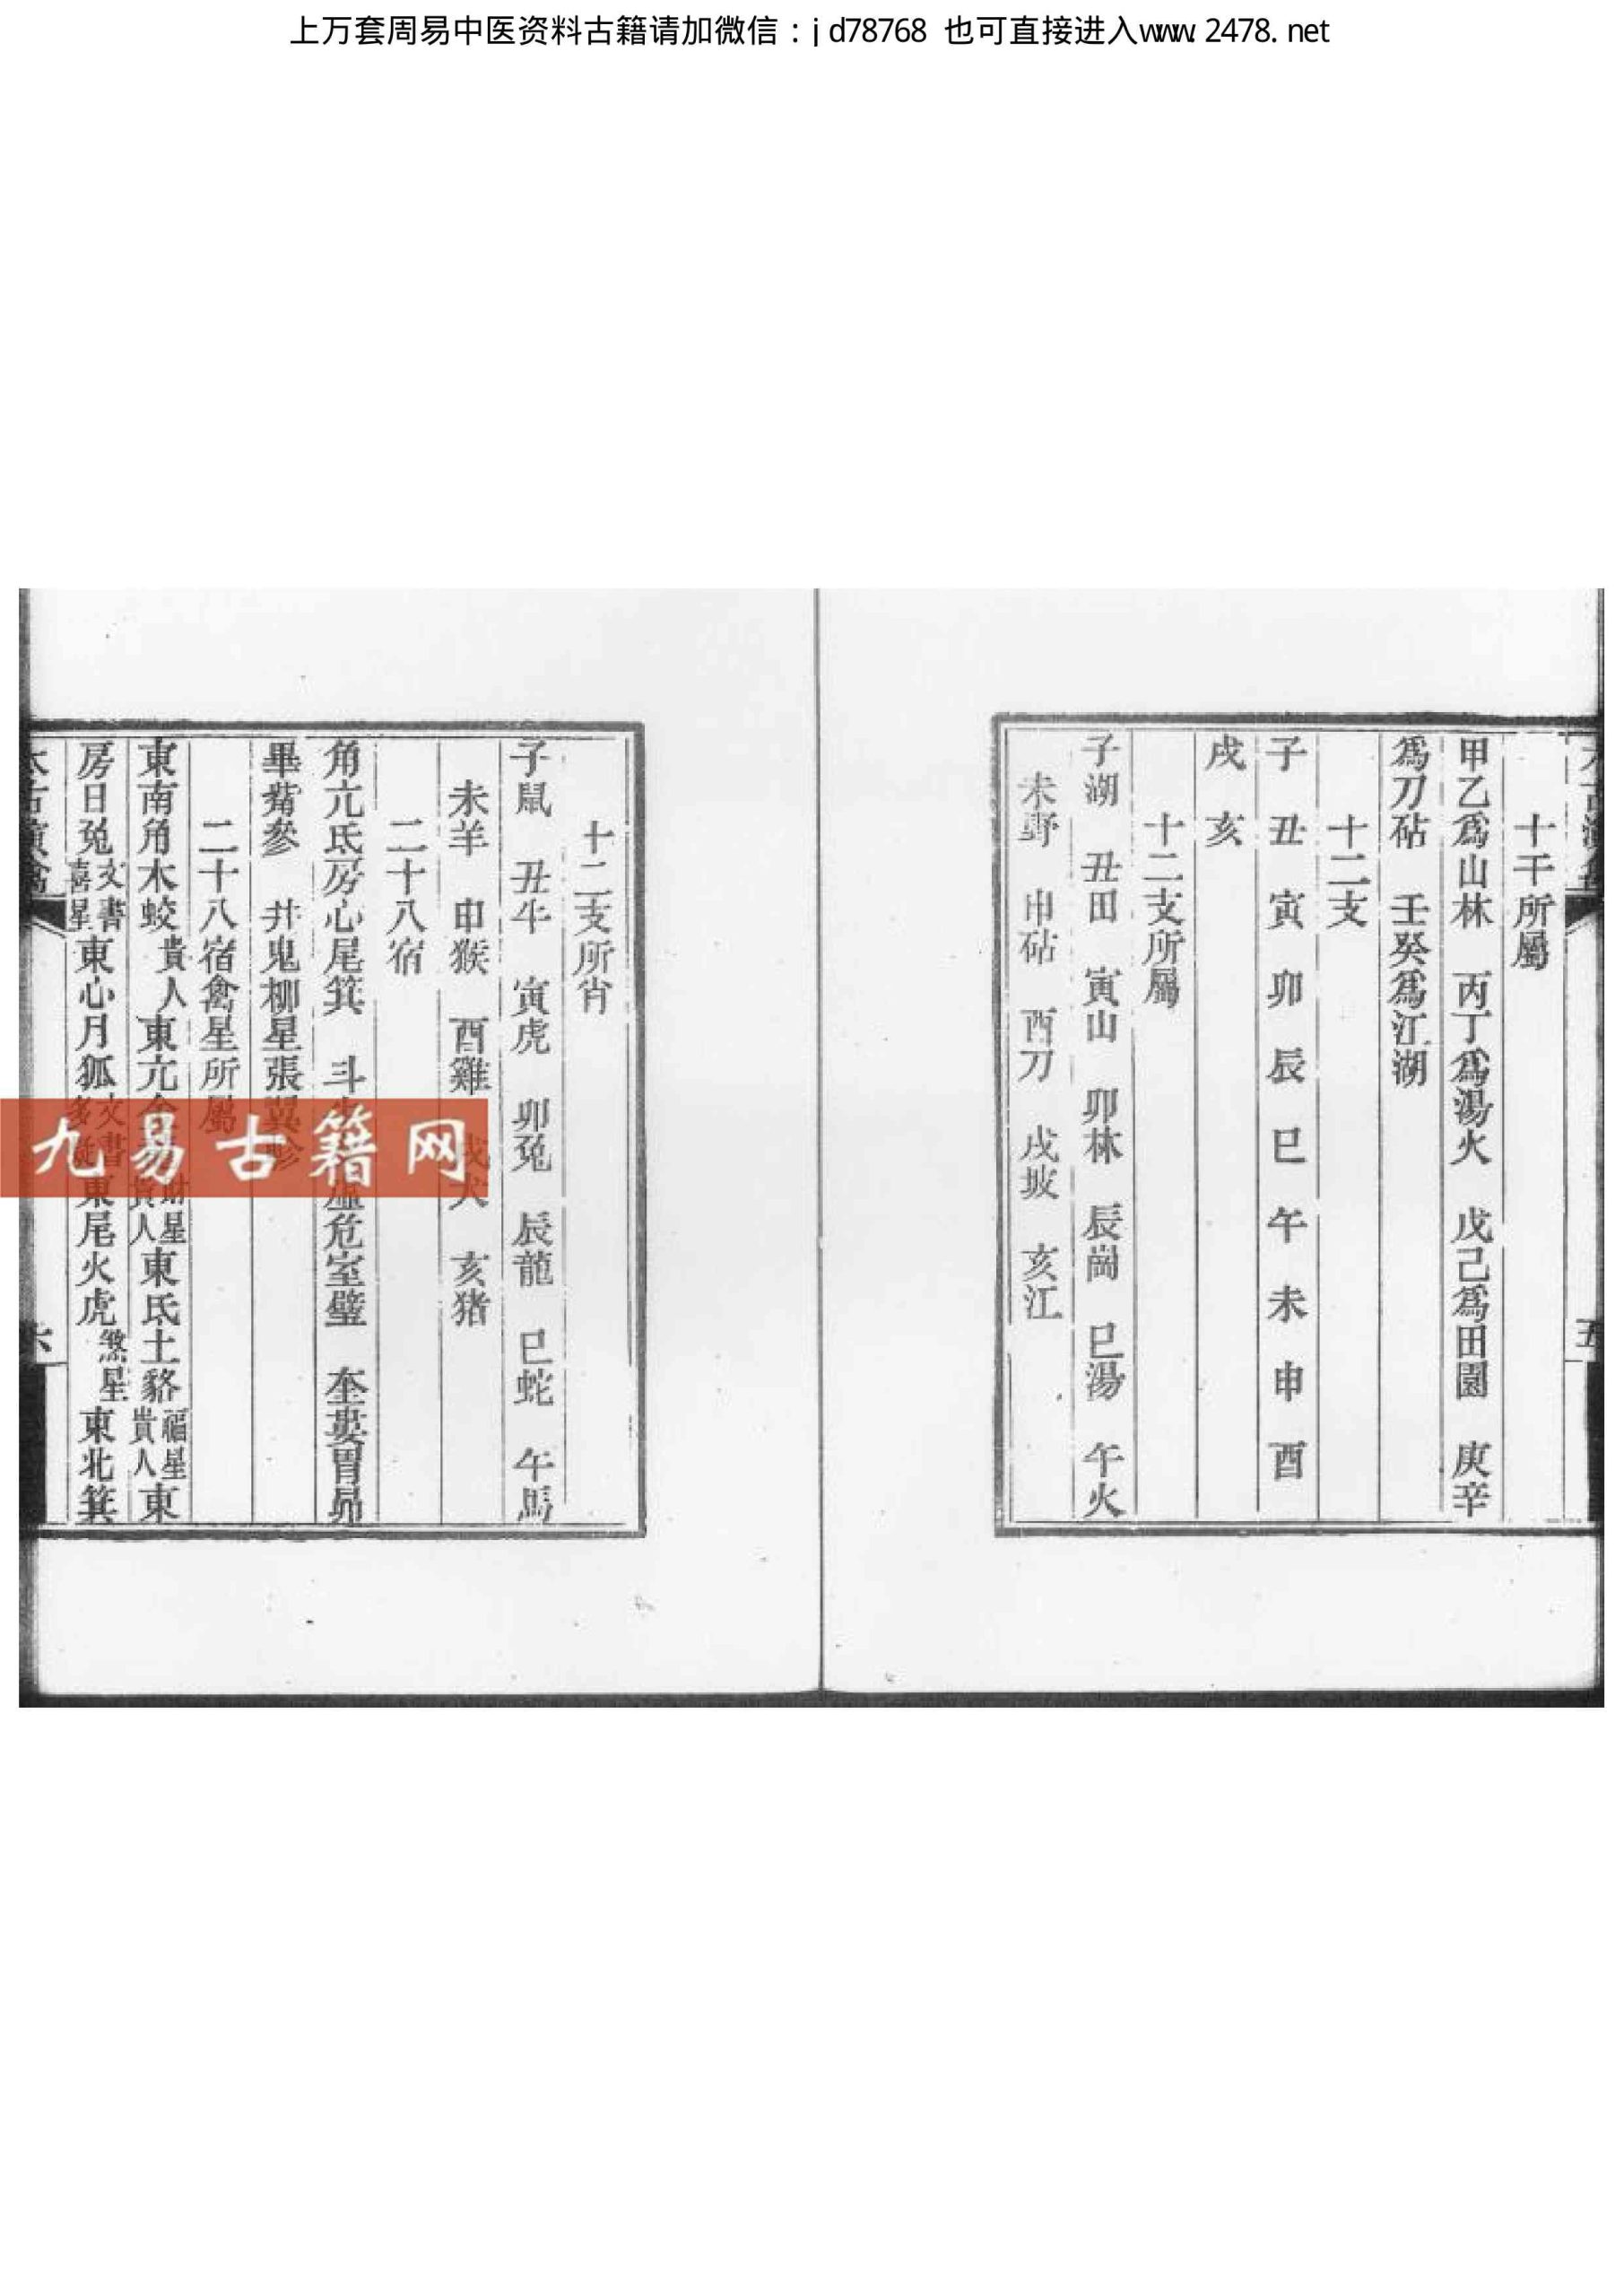 上万套周易中医资料古籍请加微信：jd78768 也可直接进入www.2478.net
十干所屬
甲乙爲山林 丙丁爲湯火 戊己爲田園 庚辛
爲刀砧 壬癸爲江湖
十二支
子 丑 寅 卯 辰 巳 午 未 申 酉
戌 亥
十二支所屬
子湖 丑田 寅山 卯林 辰崗 巳湯 午火
未野 申砧 酉刀 戌坡 亥江
五
十二支所肖
子鼠 丑牛 寅虎 卯兔 辰龍 巳蛇 午馬
未羊 申猴 酉雞 戌犬 亥猪
二十八宿
角亢氐房心尾箕 斗 虛危室壁 奎婁胃昴
畢觜參 井鬼柳星張翼軫
二十八宿禽星所屬
東南角木蛟貴人東亢金 財星貴人東氐土貉福星貴人東
房日兔文書喜星東心月狐文書多疑東尾火虎煞星東北箕
六
九易古籍网